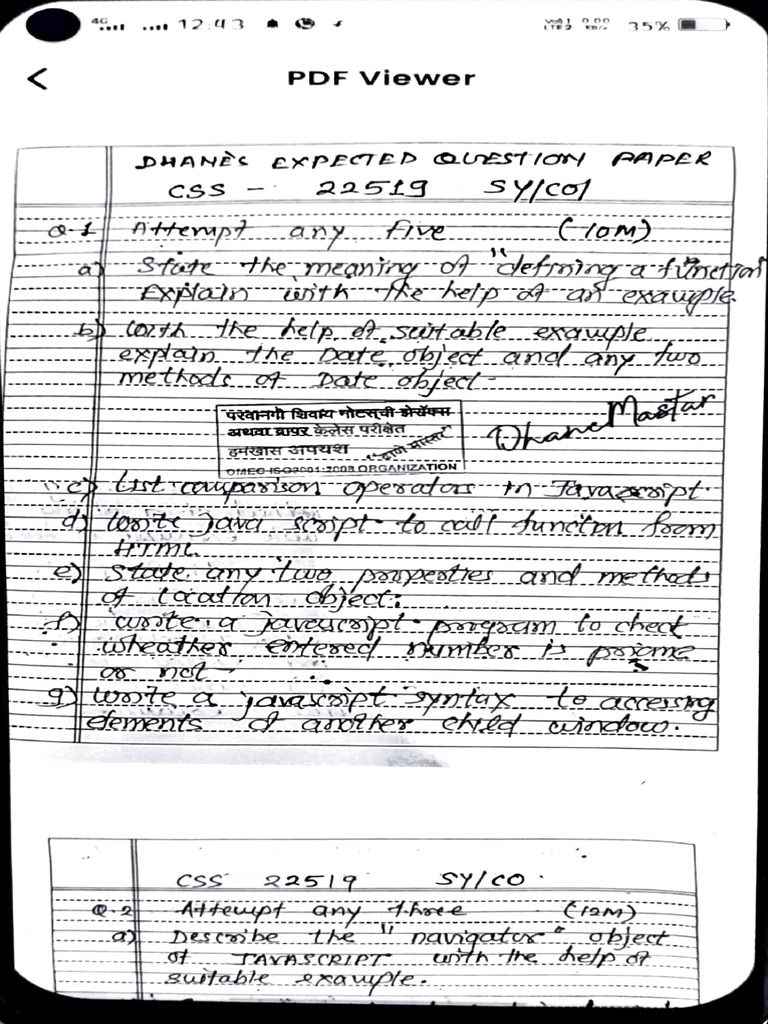 4G 12:43 35%
PDF Viewer
DHANE'S EXPECTED QUESTION PAPER
CSS - 22519 SY/CO/
Q.1 Attempt any five (10M)
a) State the meaning of "defining a function
Explain with the help of an example.
b) With the help of suitable example
explain the Date object and any two
methods of Date object -
परवानगी शिवाय नोटस्ची झेरॉक्स
अथवा वापर केलेस परीक्षेत
हमखास अपयश
OMEC ISO9001:2008 ORGANIZATION
Dhane Mastar
c) List comparison operators in Javascript.
d) Write java script to call function from
HTML.
e) State any two properties and methods
of location object.
f) write a javascript program to check
wheather entered number is prime
or not -
g) Write a javascript syntax to accessing
elements of another child window.
CSS 22519 SY/CO.
Q.2 Attempt any three (12M)
a) Describe the "navigator" object
of JAVASCRIPT with the help of
suitable example.